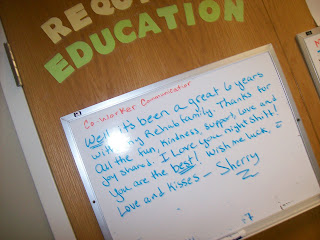 REQU
EDUCATION
Co-Worker Communication
Well! It's been a great 6 years
with my Rehab family. Thanks for
all the fun, kindness, support, love and
joy shared. I Love you, night shift!
You are the best! Wish me luck. =
Love and Kisses - Sherry